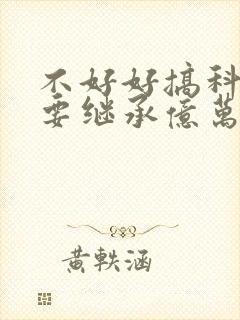 不好好搞科
要继承億萬
黃軼涵